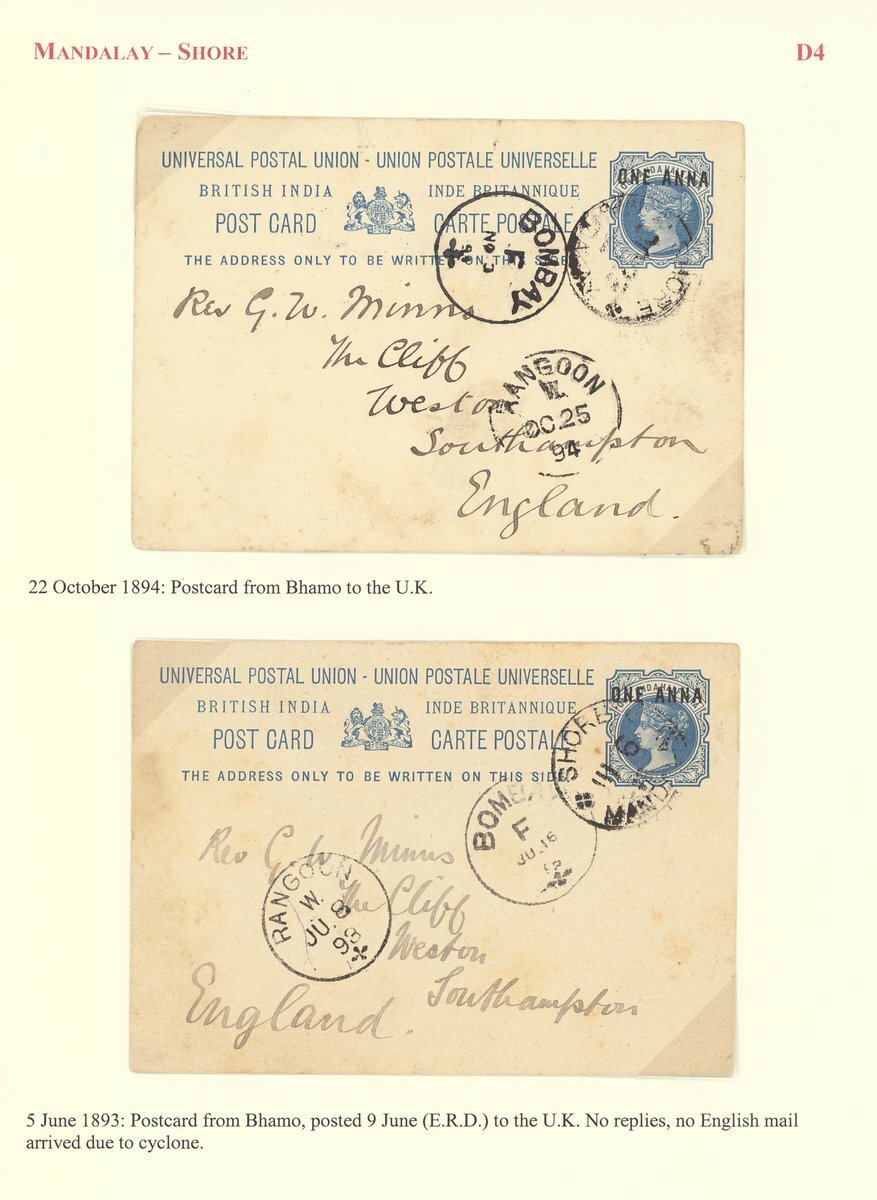 MANDALAY – SHORE D4
UNIVERSAL POSTAL UNION - UNION POSTALE UNIVERSELLE
BRITISH INDIA INDE BRITANNIQUE
POST CARD CARTE POSTALE
THE ADDRESS ONLY TO BE WRITTEN ON THIS SIDE
ONE ANNA
BOMBAY
F
SHORE
Rev G. W. Minns
The Cliff
Weston
Southampton
England.
RANGOON
W.
OC.25
94
22 October 1894: Postcard from Bhamo to the U.K.
UNIVERSAL POSTAL UNION - UNION POSTALE UNIVERSELLE
BRITISH INDIA INDE BRITANNIQUE
POST CARD CARTE POSTALE
THE ADDRESS ONLY TO BE WRITTEN ON THIS SIDE
ONE ANNA
SHORE
MAND
BOMBAY
F
JU.16
Rev G. W. Minns
The Cliff
Weston
Southampton
England.
RANGOON
W.
JU.8
93
5 June 1893: Postcard from Bhamo, posted 9 June (E.R.D.) to the U.K. No replies, no English mail
arrived due to cyclone.